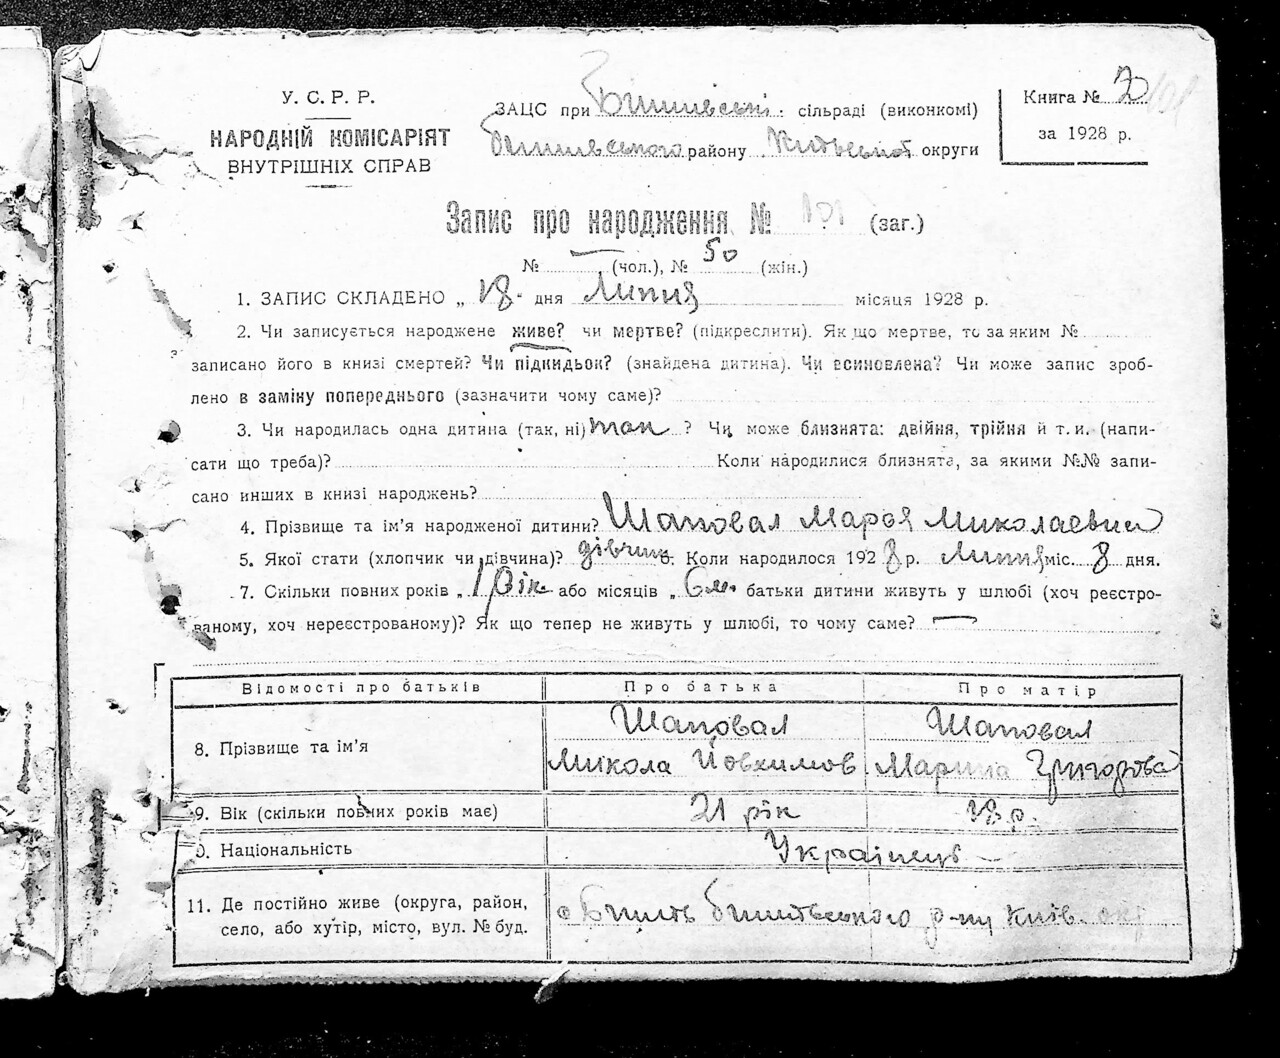 У. С. Р. Р.
НАРОДНІЙ КОМІСАРІЯТ
ВНУТРІШНІХ СПРАВ
ЗАЦС при Бишівській сільраді (виконкомі)
Бишівського району Київської округи
Книга № 2
за 1928 р.
Запис про народження № 101 (заг.)
№ — (чол.), № 50 (жін.)
1. ЗАПИС СКЛАДЕНО „ 18 дня Липня місяця 1928 р.
2. Чи записується народжене живе? чи мертве? (підкреслити). Як що мертве, то за яким №
записано його в книзі смертей? Чи підкидьок? (знайдена дитина). Чи всиновлена? Чи може запис зроб-
лено в заміну попереднього (зазначити чому саме)?
3. Чи народилась одна дитина (так, ні) так ? Чи може близнята: двійня, трійня й т. и. (напи-
сати що треба)? Коли народилися близнята, за якими №№ запи-
сано инших в книзі народжень?
4. Прізвище та ім'я народженої дитини? Шаповал Марія Миколаевна
5. Якої стати (хлопчик чи дівчина)? дівчина 6. Коли народилося 1928 р. Липня міс. 8 дня.
7. Скільки повних років „ 1 рік або місяців „ 6 м. батьки дитини живуть у шлюбі (хоч реєстро-
ваному, хоч нереєстрованому)? Як що тепер не живуть у шлюбі, то чому саме? —
Відомості про батьків Про батька Про матір
8. Прізвище та ім'я Шаповал Микола Йовхимов Шаповал Марина Григорова
9. Вік (скільки повних років має) 21 рік 18 р.
0. Національність Українець —
11. Де постійно живе (округа, район,
село, або хутір, місто, вул. № буд.
с Бишів Бишівського р-ну Київ. окр